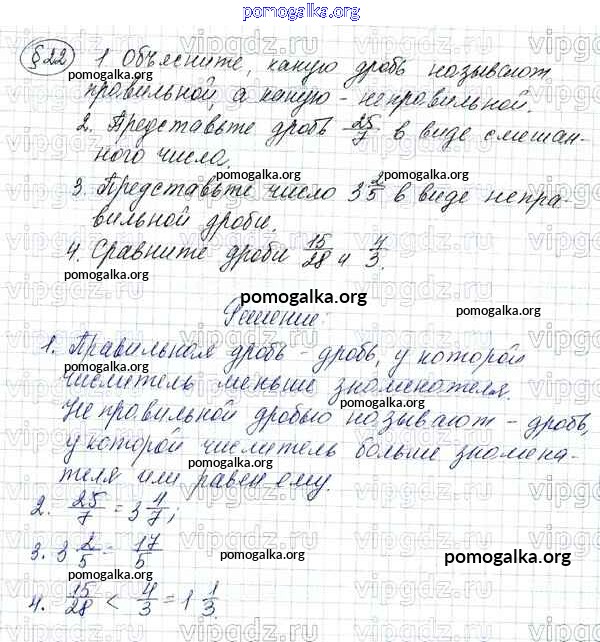 pomogalka.org
§22 1 Объясните, какую дробь называют
pomogalka.org
правильной, а какую – неправильной.
2. Представьте дробь 25/7 в виде смешан-
ного числа.
pomogalka.org
3. Представьте число 3 2/5 в виде непра-
вильной дроби.
pomogalka.org
4. Сравните дроби 15/28 и 4/3.
pomogalka.org
pomogalka.org
Решение:
pomogalka.org
1. Правильная дробь – дробь, у которой
числитель меньше знаменателя.
pomogalka.org
Неправильной дробью называют – дробь,
у которой числитель больше знамена-
pomogalka.org
теля или равен ему.
2. 25/7 = 3 4/7;
pomogalka.org
3. 3 2/5 = 17/5
pomogalka.org
pomogalka.org
pomogalka.org
4. 15/28 < 4/3 = 1 1/3.
pomogalka.org
vipgdz.ru